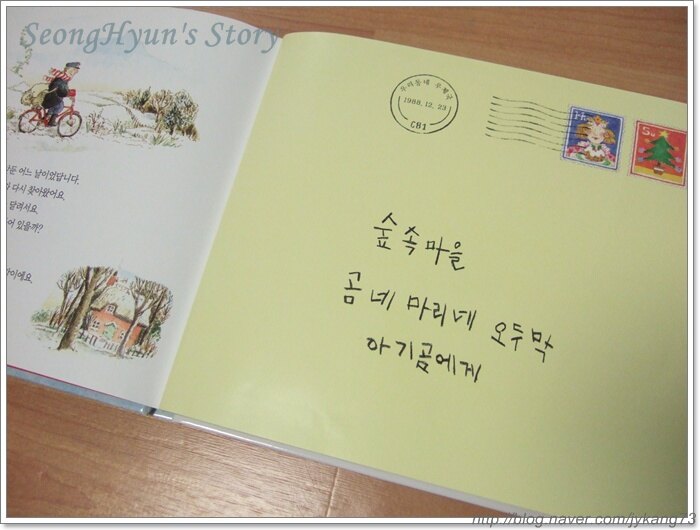 SeongHyun's Story
두 어느 날이었답니다.
다시 찾아왔어요.
달려서요.
어 있을까?
아이에요.
우리동네 우체국
1988.12.23
CB1
5u
숲속마을
곰 네 마리네 오두막
아기곰에게
http://blog.naver.com/jykang73